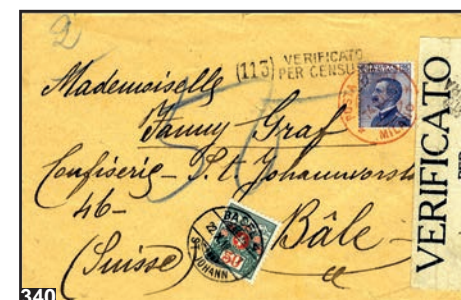 2
(113) VERIFICATO
PER CENSURA
Mademoiselle
Fanny Graf
Confiserie - St Johannvorst
46-
Bâle
(Suisse)
MILANO
BASEL
ST. JOHANN
50
VERIFICATO
PER
340